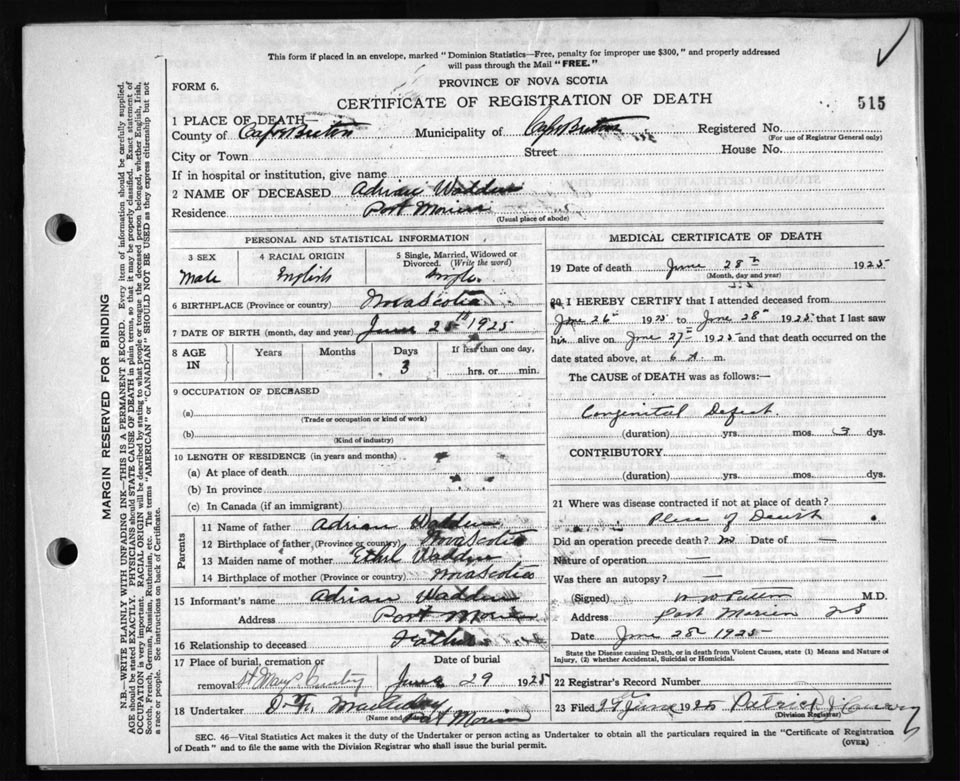 This form if placed in an envelope, marked "Dominion Statistics—Free, penalty for improper use $300," and properly addressed
will pass through the Mail "FREE."
FORM 6.
PROVINCE OF NOVA SCOTIA
CERTIFICATE OF REGISTRATION OF DEATH
515
1 PLACE OF DEATH—
County of Cape Breton Municipality of Cape Breton Registered No.
(For use of Registrar General only)
City or Town Street House No.
If in hospital or institution, give name
2 NAME OF DECEASED Adrian Wadden
Residence Port Morien
(Usual place of abode)
PERSONAL AND STATISTICAL INFORMATION
3 SEX 4 RACIAL ORIGIN 5 Single, Married, Widowed or Divorced. (Write the word)
Male English Single
6 BIRTHPLACE (Province or country) Nova Scotia
7 DATE OF BIRTH (month, day and year) June 25th 1925
8 AGE IN Years Months Days If less than one day,
3 hrs. or min.
9 OCCUPATION OF DECEASED
(a)
(Trade or occupation or kind of work)
(b)
(Kind of industry)
10 LENGTH OF RESIDENCE (in years and months)
(a) At place of death
(b) In province
(c) In Canada (if an immigrant)
Parents
11 Name of father Adrian Wadden
12 Birthplace of father (Province or country) Nova Scotia
13 Maiden name of mother Ethel Wadden
14 Birthplace of mother (Province or country) Nova Scotia
15 Informant's name Adrian Wadden
Address Port Morien
16 Relationship to deceased Father
17 Place of burial, cremation or removal Date of burial
St Marys June 29 1925
18 Undertaker
(Name and Port Morien
MEDICAL CERTIFICATE OF DEATH
19 Date of death June 28th 1925
(Month, day and year)
20 I HEREBY CERTIFY that I attended deceased from
June 26th 1925 to June 28th 1925 that I last saw
him alive on June 27th 1925 and that death occurred on the
date stated above, at 6 A. m.
The CAUSE OF DEATH was as follows:—
Congenital Defect.
(duration) yrs. mos. 3 dys.
CONTRIBUTORY
(duration) yrs. mos. dys.
21 Where was disease contracted if not at place of death?
Place of Death
Did an operation precede death? no Date of —
Nature of operation —
Was there an autopsy? —
(Signed) M.D.
Address Port Morien NS
Date June 28th 1925
State the Disease causing Death, or in death from Violent Causes, state (1) Means and Nature of
Injury, (2) whether Accidental, Suicidal or Homicidal.
22 Registrar's Record Number
23 Filed June 1925 Patrick
(Division Registrar)
SEC. 46—Vital Statistics Act makes it the duty of the Undertaker or person acting as Undertaker to obtain all the particulars required in the "Certificate of Registration
of Death" and to file the same with the Division Registrar who shall issue the burial permit. (OVER)
MARGIN RESERVED FOR BINDING
N.B.—WRITE PLAINLY WITH UNFADING INK—THIS IS A PERMANENT RECORD. Every item of information should be carefully supplied.
AGE should be stated EXACTLY. PHYSICIANS should STATE CAUSE OF DEATH in plain terms, so that it may be properly classified. Exact statement of
OCCUPATION is very important. RACIAL ORIGIN will be described by stating to what people or tongue the deceased person belonged, whether English, Irish,
Scotch, French, German, Russian, Ruthenian, etc. The terms "AMERICAN" or "CANADIAN" SHOULD NOT BE USED as they express citizenship but not
a race or people. See instructions on back of Certificate.